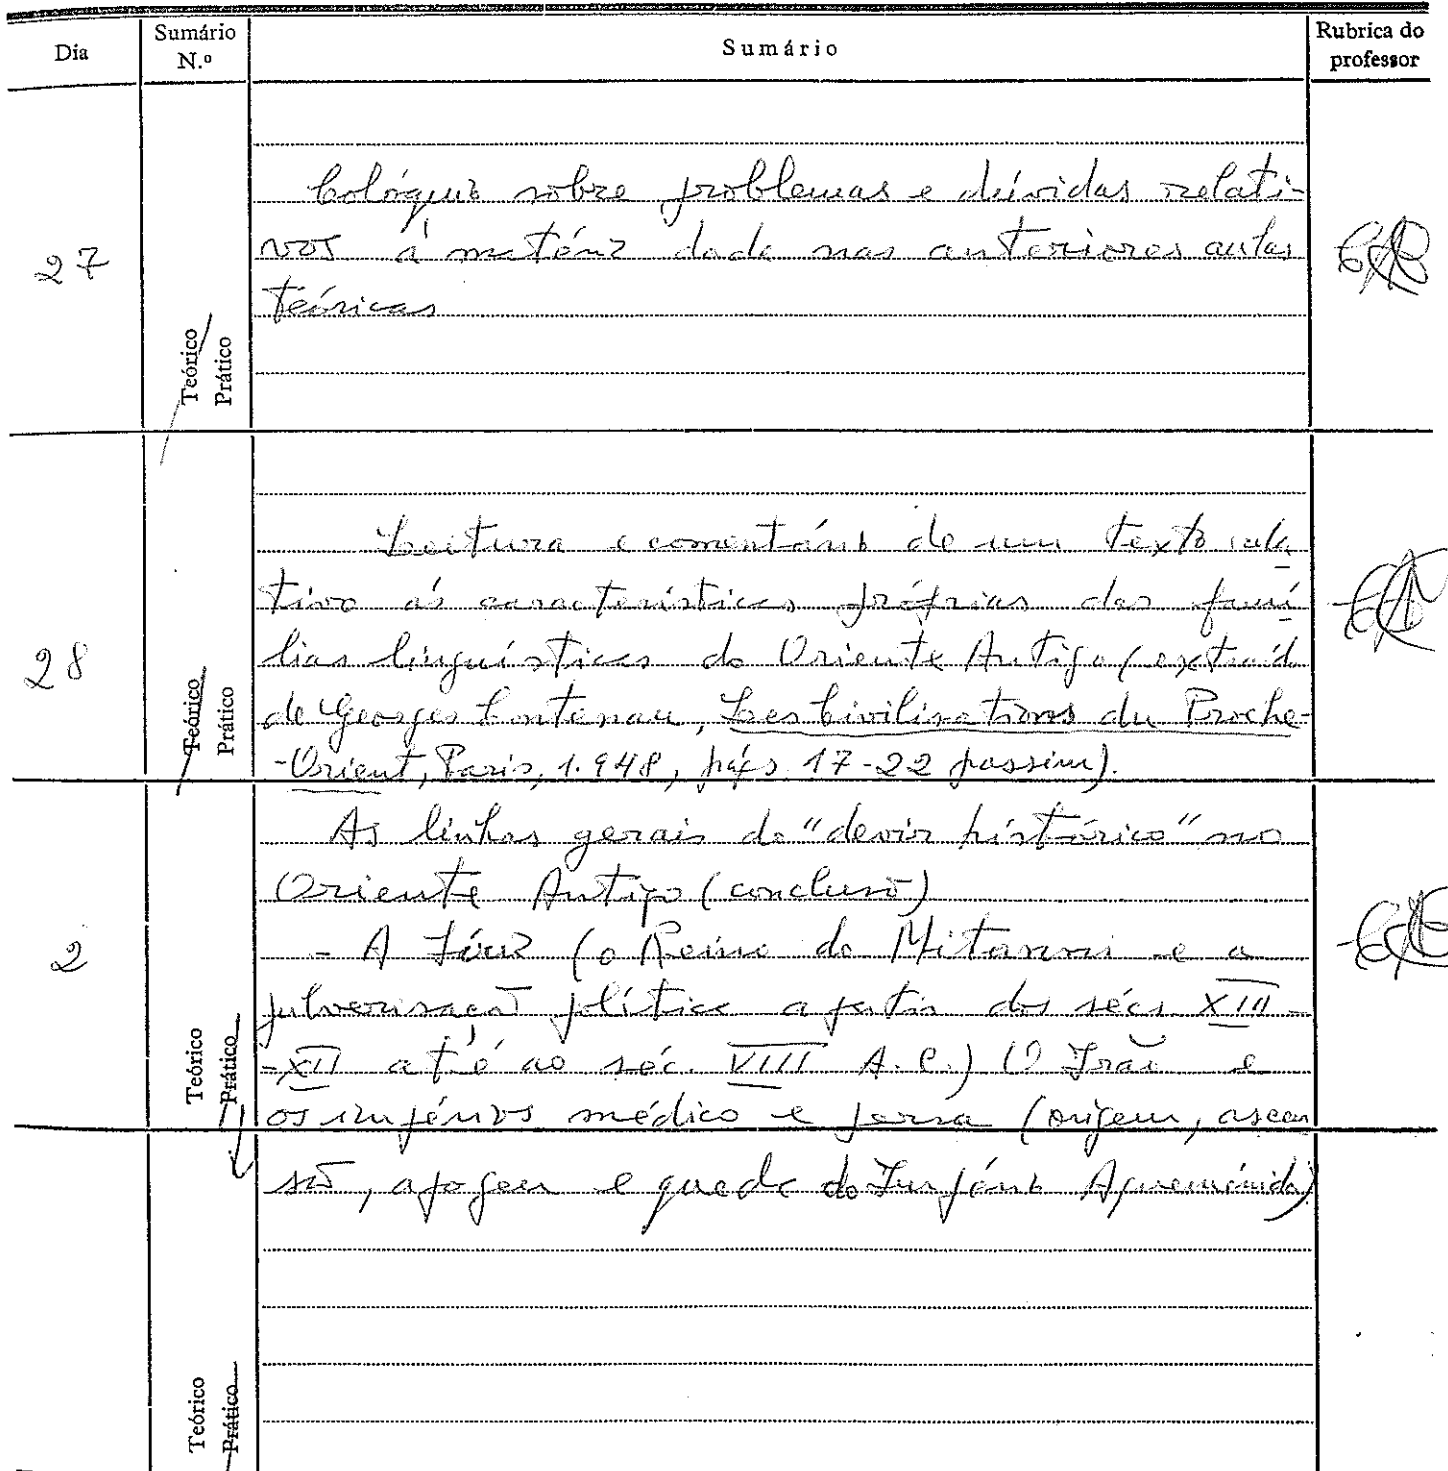 Dia
Sumário N.º
Sumário
Rubrica do professor
27
Teórico
Prático
Colóquio sobre problemas e dúvidas relati-
vos à matéria dada nas anteriores aulas
teóricas
28
Teórico
Prático
Leitura e comentário de um texto rela
tivo às características próprias das famí
lias linguísticas do Oriente Antigo (extraído
de Georges Contenau, Les Civilisations du Proche-
-Orient, Paris, 1.948, págs 17-22 passim).
2
Teórico
Prático
As linhas gerais do "devir histórico" no
Oriente Antigo (conclusão)
- A Síria (o Reino do Mitanni e a
pulverização política a partir dos sécs XIII-
-XII até ao séc. VIII A.C.) O Irão e
os impérios médico e persa (origem, ascen
são, apogeu e queda do Império Aqueménida)
Teórico
Prático